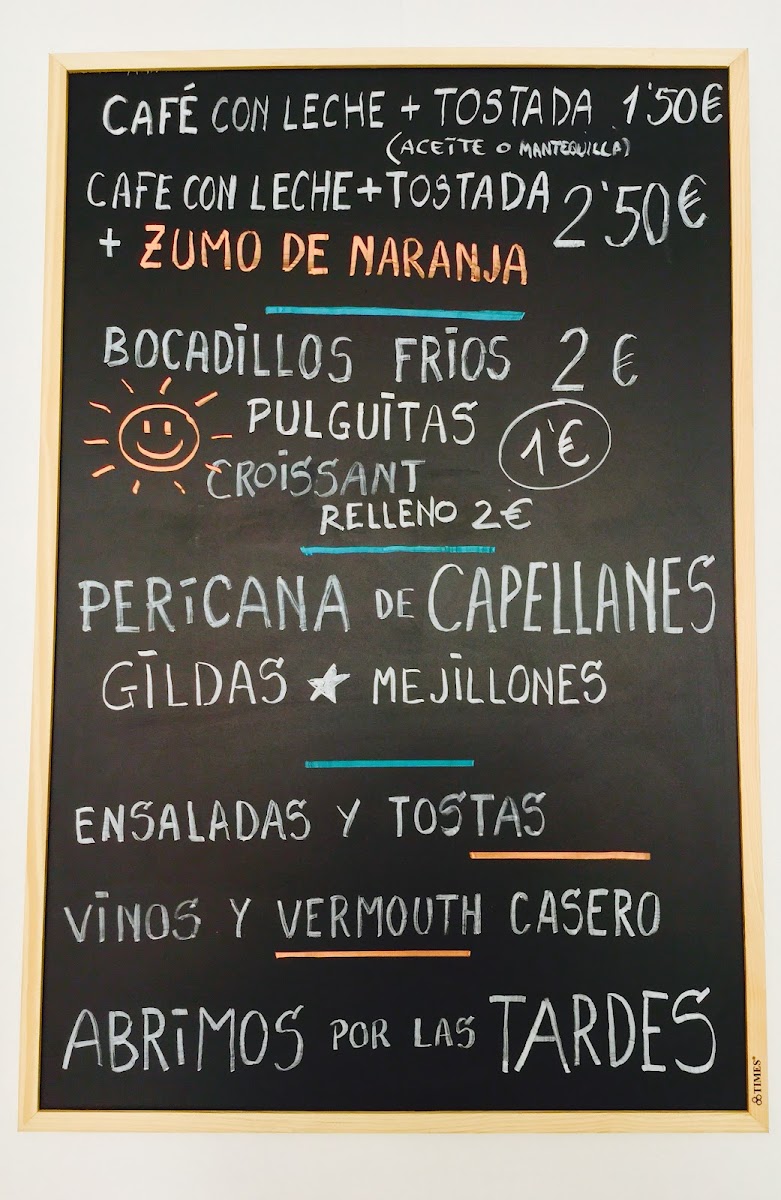 CAFÉ CON LECHE + TOSTADA 1'50€
(ACEITE O MANTEQUILLA)
CAFE CON LECHE + TOSTADA 2'50€
+ ZUMO DE NARANJA
BOCADILLOS FRIOS 2 €
PULGUITAS 1'€
CROISSANT
RELLENO 2€
PERICANA DE CAPELLANES
GILDAS ★ MEJILLONES
ENSALADAS Y TOSTAS
VINOS Y VERMOUTH CASERO
ABRIMOS POR LAS TARDES
TIMES